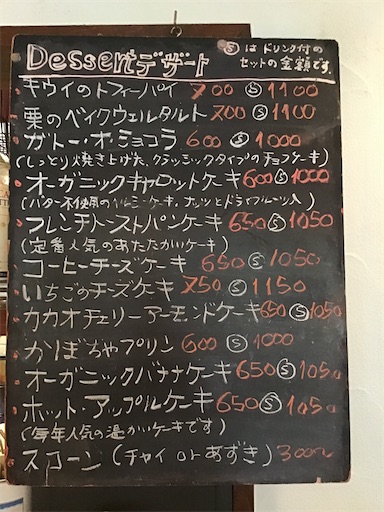 Dessert デザート
Ⓢは ドリンク付の
セットの金額です。
キウイのトフィーパイ 700 Ⓢ 1100
栗のベイクウェルタルト 700 Ⓢ 1100
ガトー・オ・ショコラ 600 Ⓢ 1000
(しっとり焼き上げた、クラシックタイプのチョコケーキ)
オーガニックキャロットケーキ 600 Ⓢ 1000
(バター不使用の ケーキ。ナッツとドライフルーツ入)
フレンチトーストパンケーキ 650 Ⓢ 1050
(定番人気のあたたかいケーキ)
コーヒーチーズケーキ 650 Ⓢ 1050
いちごのチーズケーキ 750 Ⓢ 1150
カカオチェリーアーモンドケーキ 650 Ⓢ 1050
かぼちゃプリン 600 Ⓢ 1000
オーガニックバナナケーキ 650 Ⓢ 1050
ホット・アップルケーキ 650 Ⓢ 1050
(毎年人気の温かいケーキです)
スコーン (チャイ or あずき) 300